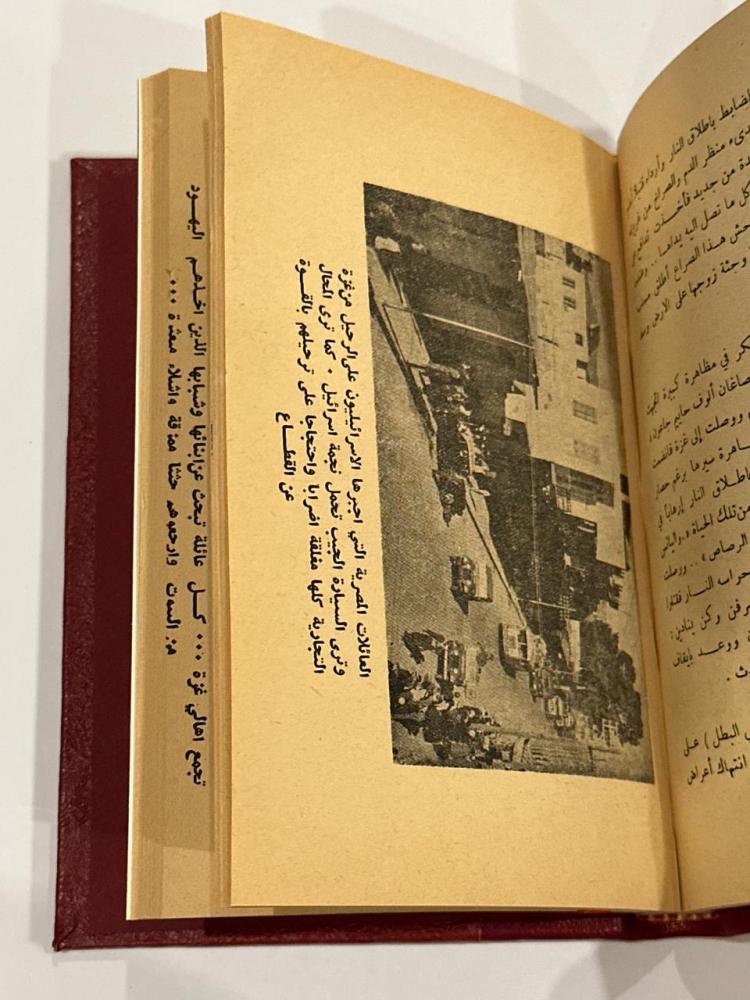 العائلات المصرية التي اجبرها الاسرائيليون على الرحيل من غزة
وترى السيارة الجيب تحمل نجمة اسرائيل . كما ترى المحال
التجارية كلها مغلقة اضرابا واحتجاجا على ترحيلهم بالقوة
عن القطاع
تجمع اهالي غزة ... كل عائلة تبحث عن ابنائها وشبابها الذين اخذهم اليهود
من البيوت وارجعوهم جثثا ممزقة واشلاء مبعثرة ...
ضابط باطلاق النار وأرداه
منظر الدم والصراخ من
دة من جديد فأخذت تدافع
كل ما تصل اليه يداها .. 
حش هذا الصراع أطلق
وجثة زوجها على الارض
كر في مظاهرة كبيرة
صاغان ألوف
ووصلت إلى غزة
اهرة سيرها برغم حصار
باطلاق النار إرهاباً في
من تلك الحياة
الرصاص » .. ووصلت
حراب النار فقتلوا
رفن وكن ينادين :
ووعد بإيقاف
دث .
ي البطل ) على
انتهاك أعراض